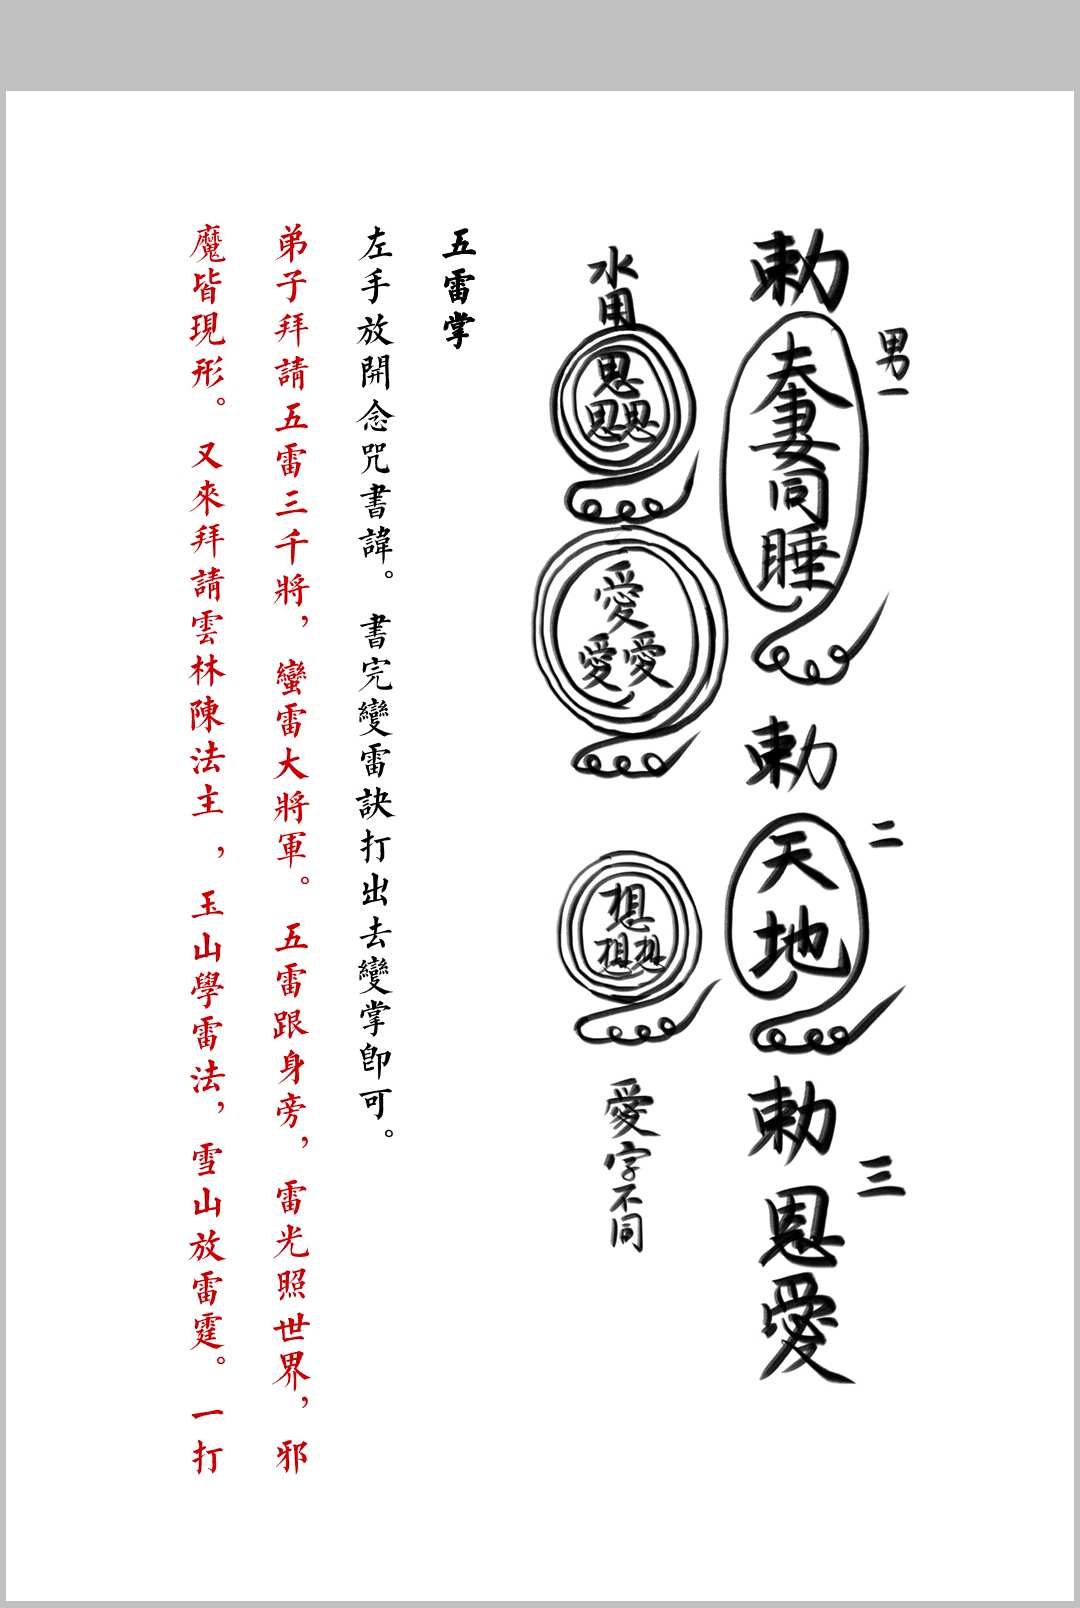 男一
勅
夫妻同睡
二
勅
天地
三
勅
恩愛
水用
思
思思
愛
愛愛
想
想想
愛字不同
五雷掌
左手放開念咒書諱。書完變雷訣打出去變掌卽可。
弟子拜請五雷三千將，蠻雷大將軍。五雷跟身旁，雷光照世界，邪
魔皆現形。又來拜請雲林陳法主，玉山學雷法，雪山放雷霆。一打